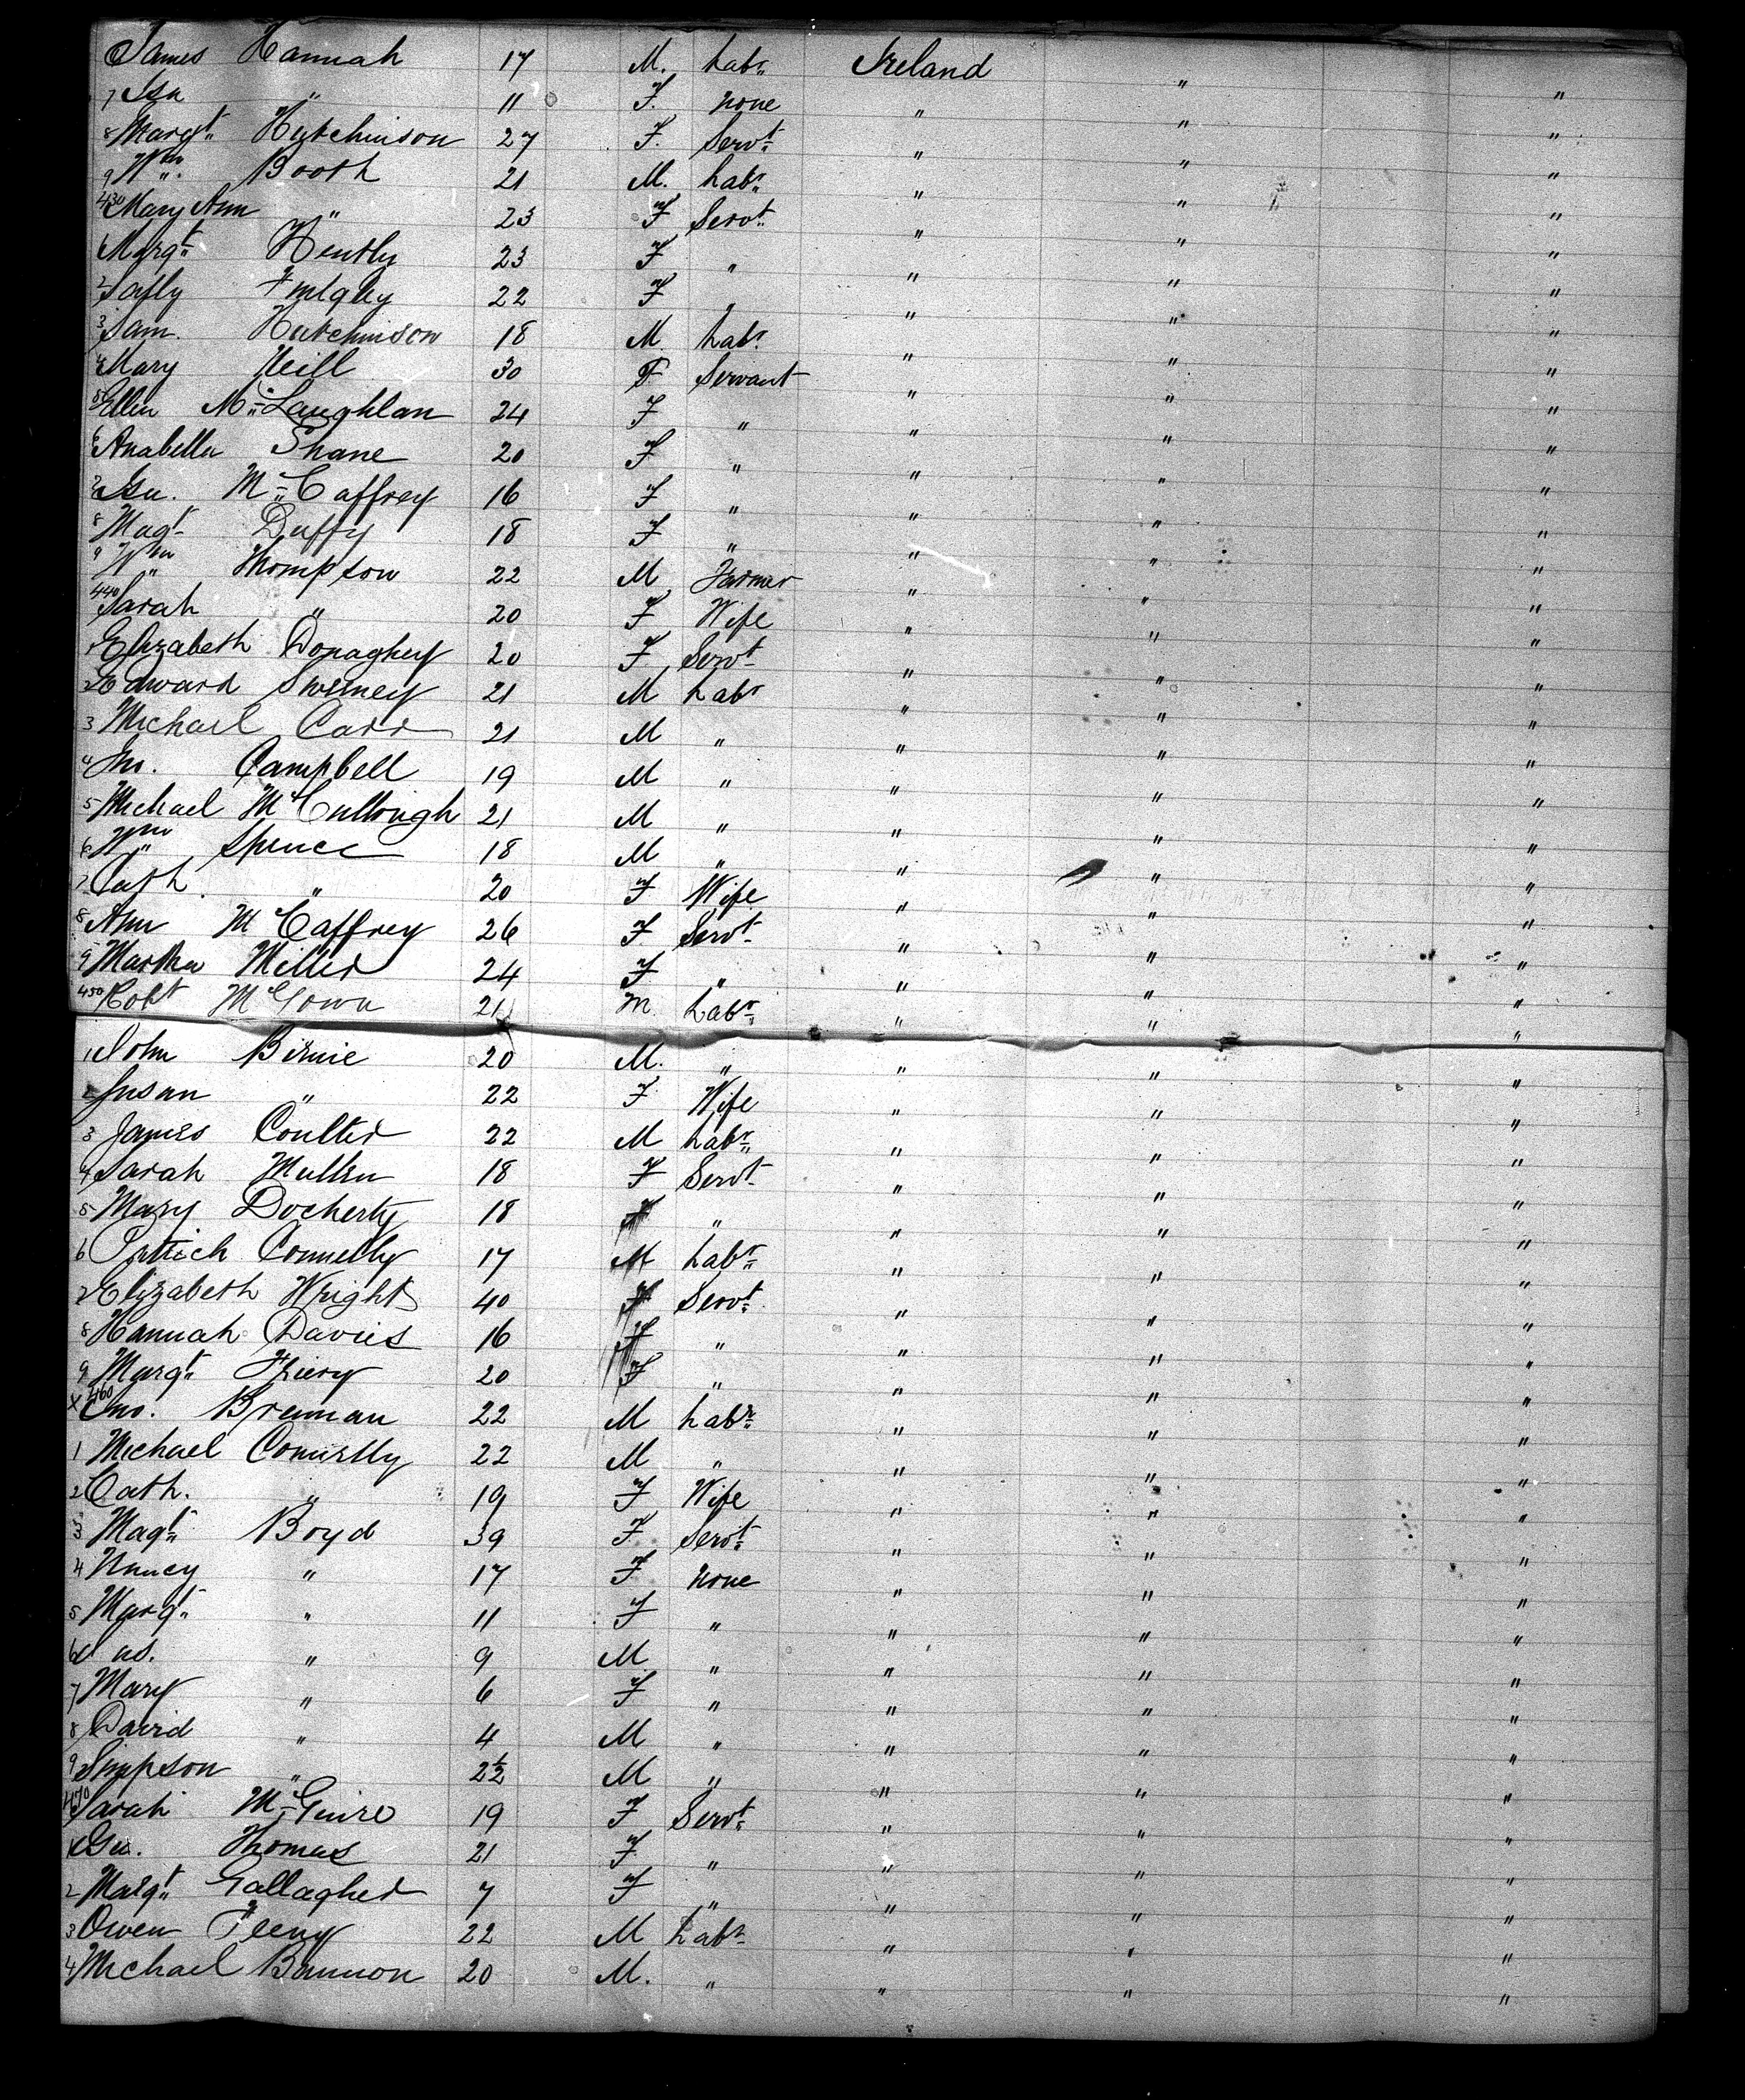 James Hannah 17 M. Labr Ireland " "
7 Isa " 11 F. None " " "
8 Margt Hutchinson 27 F. Servt " " "
9 Wm Booth 21 M. Labr " " "
430 Mary Ann " 23 F Servt " " "
1 Margt 23 F " " " "
2 22 F " " " "
3 Sam. Hutchinson 18 M. Labr " " "
4 Mary Neill 30 F Servant " " "
5 Ellen McLaughlan 24 F " " " "
6 Anabella Shane 20 F " " " "
7 Isa. McCaffrey 16 F " " " "
8 Magt Duffy 18 F " " " "
9 Wm Thompson 22 M Farmer " " "
440 Sarah " 20 F Wife " " "
1 Elizabeth Donaghey 20 F Servt " " "
2 Edward Sweeney 21 M Labr " " "
3 Michael Carr 21 M " " " "
4 Jno. Campbell 19 M " " " "
5 Michael McCullough 21 M " " " "
6 Wm Spence 18 M " " " "
7 Cath " 20 F Wife " " "
8 Ann McCaffrey 26 F Servt " " "
9 Martha Miller 24 F " " " "
450 Robt McGown 21 M Labr " " "
1 John Birnie 20 M. " " " "
2 Susan " 22 F. Wife " " "
3 James Coulter 22 M Labr " " "
4 Sarah Mullen 18 F Servt " " "
5 Mary Docherty 18 F " " " "
6 Patrick Connelly 17 M Labr " " "
7 Elizabeth Wright 40 F Servt " " "
8 Hannah Davies 16 F " " " "
9 Margt 20 F " " " "
x 460 Jno. Brennan 22 M Labr " " "
1 Michael Connelly 22 M " " " "
2 Cath. " 19 F Wife " " "
3 Magt Boyd 39 F Servt " " "
4 Nancy " 17 F None " " "
5 Margt " 11 F " " " "
6 Jas. " 9 M " " " "
7 Mary " 6 F " " " "
8 David " 4 M " " " "
9 Simpson " 2½ M " " " "
470 Sarah McGuire 19 F Servt " " "
Thomas 21 F " " " "
2 Margt Gallagher 7 F " " " "
3 Owen Feeny 22 M Labr " " "
4 Michael Bannon 20 M. " " " "